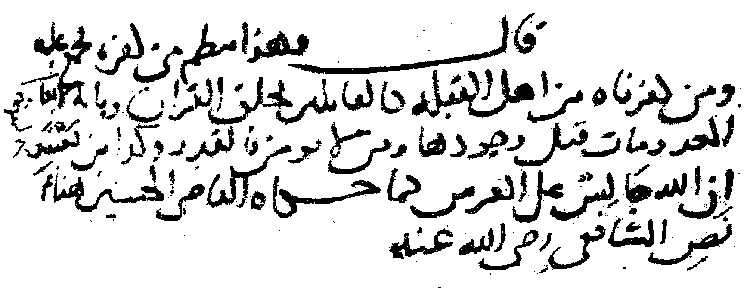 قال وهذا ينتظم من كفره مجمع عليه
ومن كفرناه من اهل القبلة كالقائلين بخلق القران وبانه لا يعلم
المعدومات قبل وجودها ومن لا يومن بالقدر وكذا من يعتقد
ان الله جالس على العرش كما حكاه القاضي الحسين هنا عن
نص الشافعي رضي الله عنه